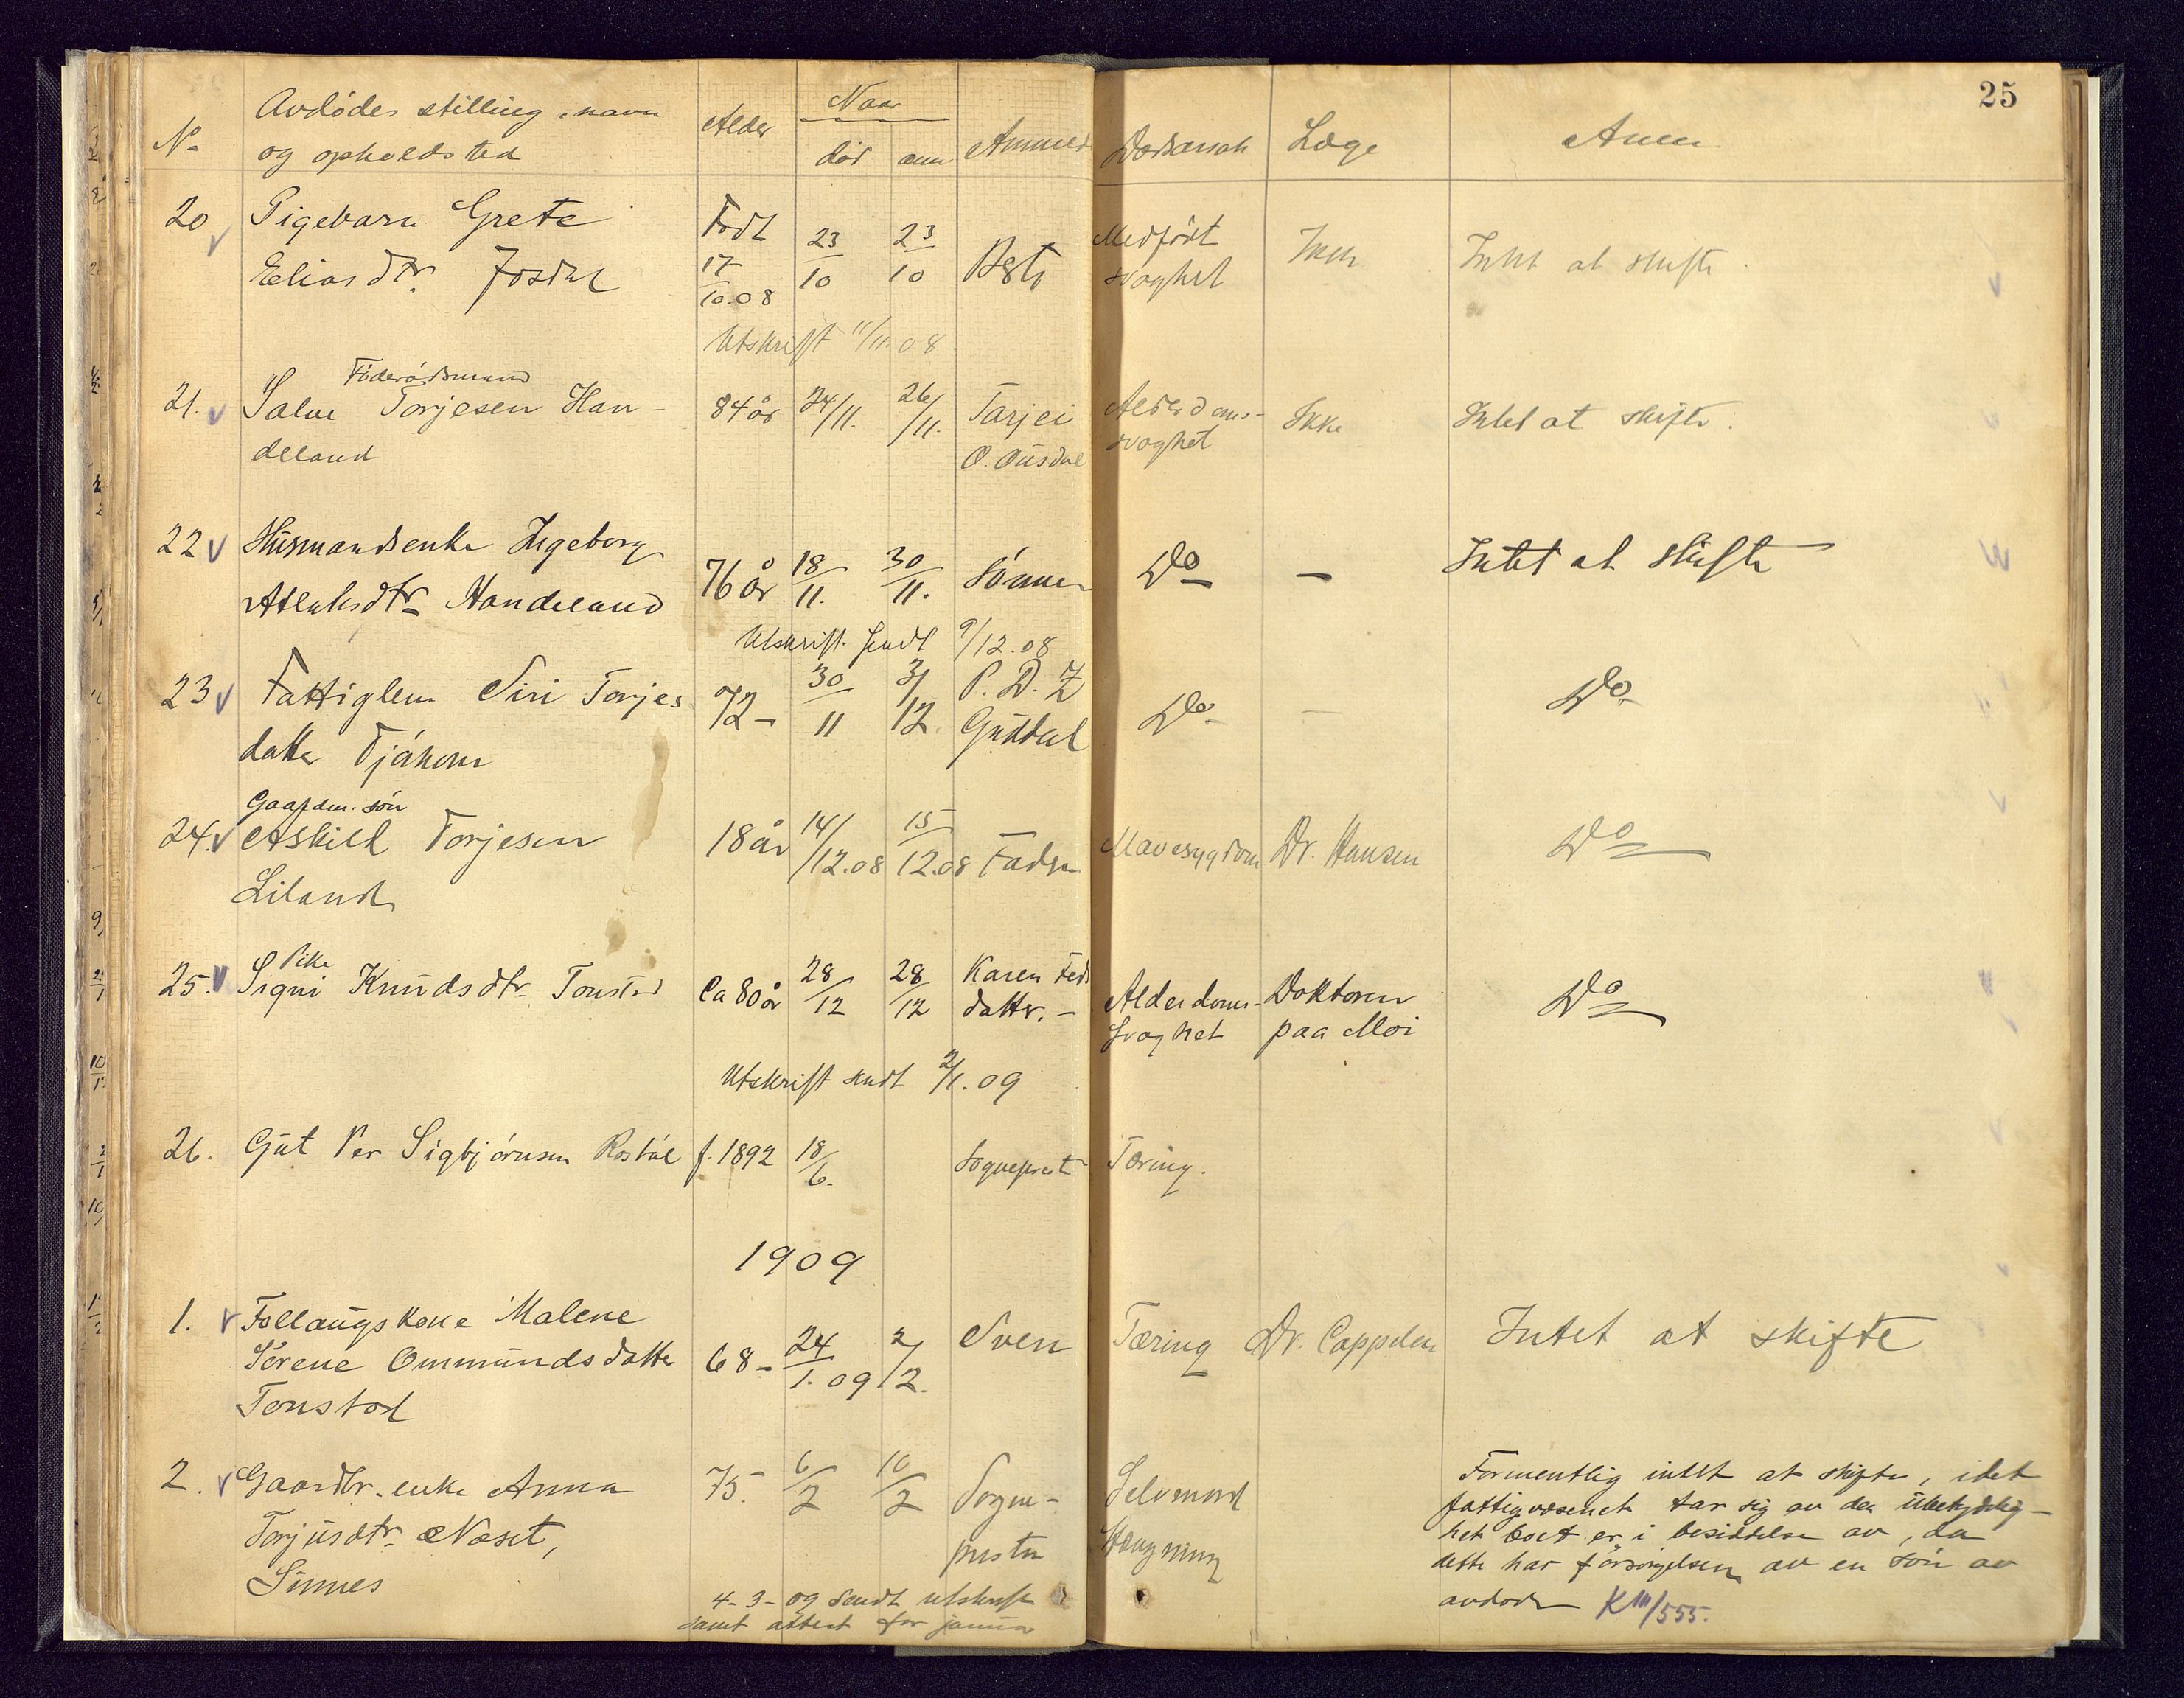 25
Avdödes stilling, navn
og opholdsted
No
Alder
Naar
död
anm.
Anmeld
Dødsaarsak
Læge
Anm.
20
Pigebarn Grete
Eliasdtr. Josdal
Född
17
10.08
23
10
23
10
Medfödt
svaghet
Ikke
Intet at skifte
Utskrift 11/11 08.
21.
Föderådsmand
Salve Torjesen Han-
deland
84 år
24/11.
26/11.
Tarjei
O. Ousdal
Alderdoms-
svaghet
Ikke
Intet at skifte.
22
Husmandsenke Ingeborg
Atlaksdtr Handeland
76 år
18
11.
30
11.
Sönnen
Do
-
Intet at skifte
Utskrift sendt 9/12.08
23
Fattiglem Siri Torjes
datter Tjåhom
72-
30
11
3/12
P. D.
Guddal
Do
-
Do
24.
Gaardm. sön
Askild Torjesen
Liland
18 år
14/12.08
15
12.08
Fader
Mavesygdom
Dr. Hansen
Do
25.
Pike
Signi Knudsdtr. Tonstad
Ca 80 år
28
12
28
12
Karen Feds
datter. -
Alderdoms-
svaghet
Doktoren
paa Moi
Do
Utskrift sendt 2/1. 09
26.
Gut Per Sigbjörnsen
f. 1892
18
6.
Sogneprest
Tæring.
1909
1.
Follaugskone Malene
Serene Ommundsdatter
Tonstad
68-
24
1. 09
2/2.
Sven
Tæring
Dr. Cappelen
Intet at skifte
2.
Gaardbr. enke Anna
Torjusdtr. Næset,
Sinnes
75.
6
2
10
2
Sogne-
presten
Selvmord
Hængning
Formentlig intet at skifte, idet
fattigvæsenet tar sig av den ubetydelig-
het boet er i besiddelse av, da
dette har forsörgelsen av en sön av
avdöde KIII/555.
4-3-09 sendt utskrift
samt attest for januar